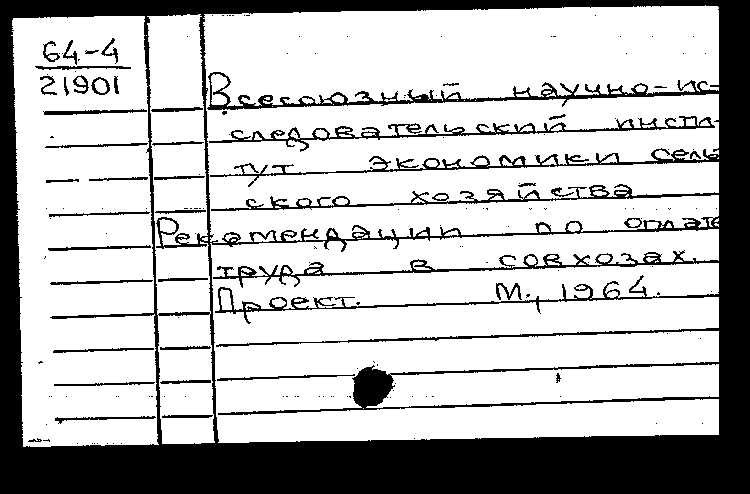 64-4
21901
Всесоюзный научно-ис-
следовательский инсти-
тут экономики сель
ского хозяйства
Рекомендации по оплате
труда в совхозах.
Проект. М., 1964.